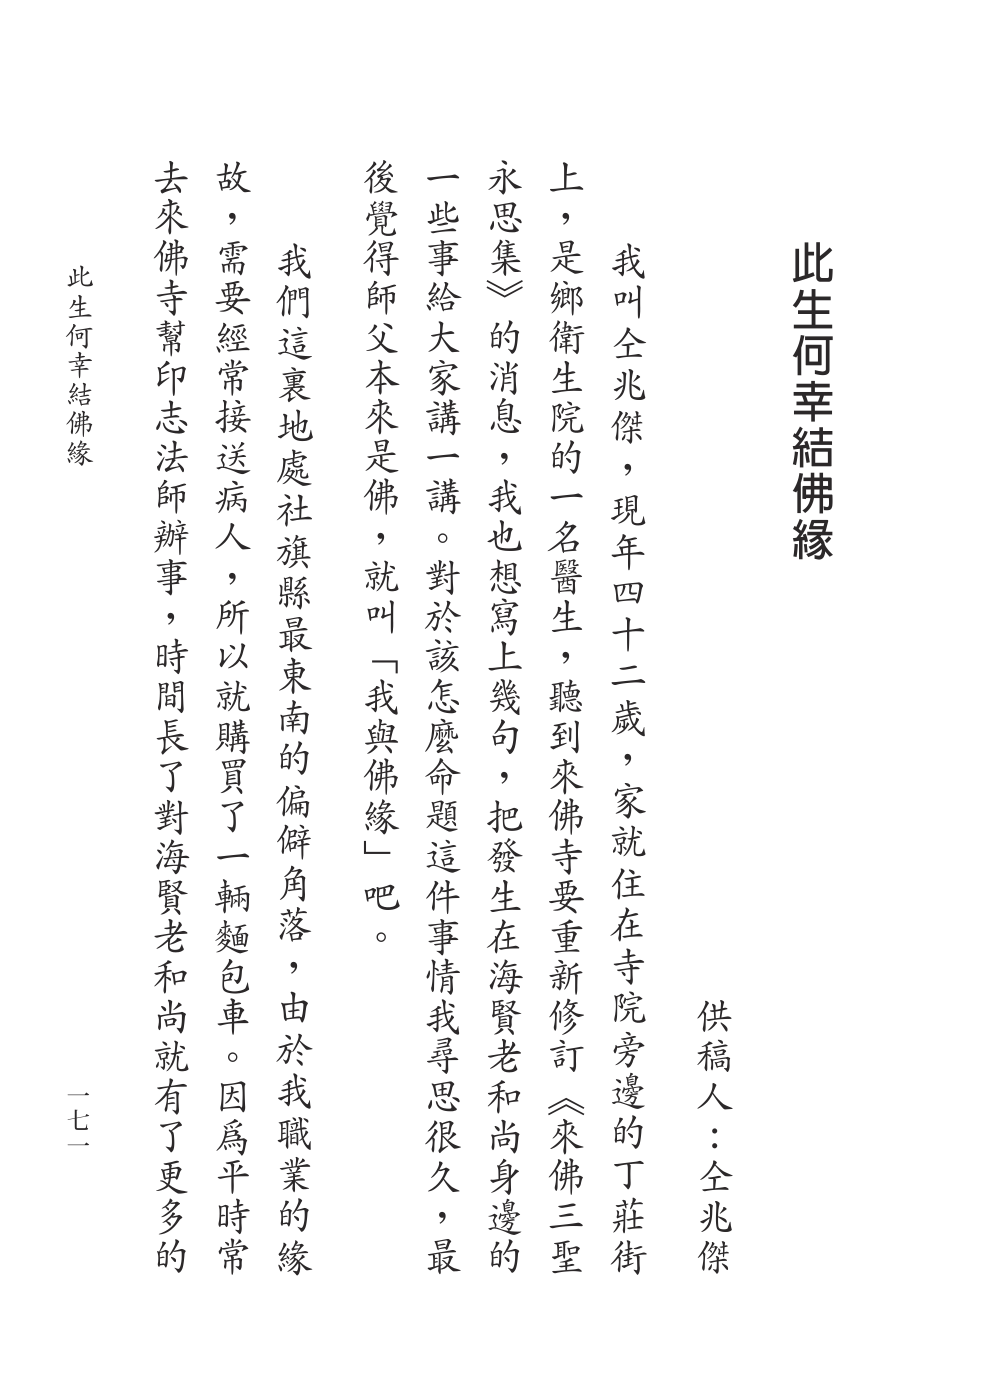 此生何幸結佛緣
供稿人：仝兆傑
我叫仝兆傑，現年四十二歲，家就住在寺院旁邊的丁莊街
上，是鄉衛生院的一名醫生，聽到來佛寺要重新修訂《來佛三聖
永思集》的消息，我也想寫上幾句，把發生在海賢老和尚身邊的
一些事給大家講一講。對於該怎麼命題這件事情我尋思很久，最
後覺得師父本來是佛，就叫「我與佛緣」吧。
我們這裏地處社旗縣最東南的偏僻角落，由於我職業的緣
故，需要經常接送病人，所以就購買了一輛麵包車。因爲平時常
去來佛寺幫印志法師辦事，時間長了對海賢老和尚就有了更多的
此生何幸結佛緣
一七一